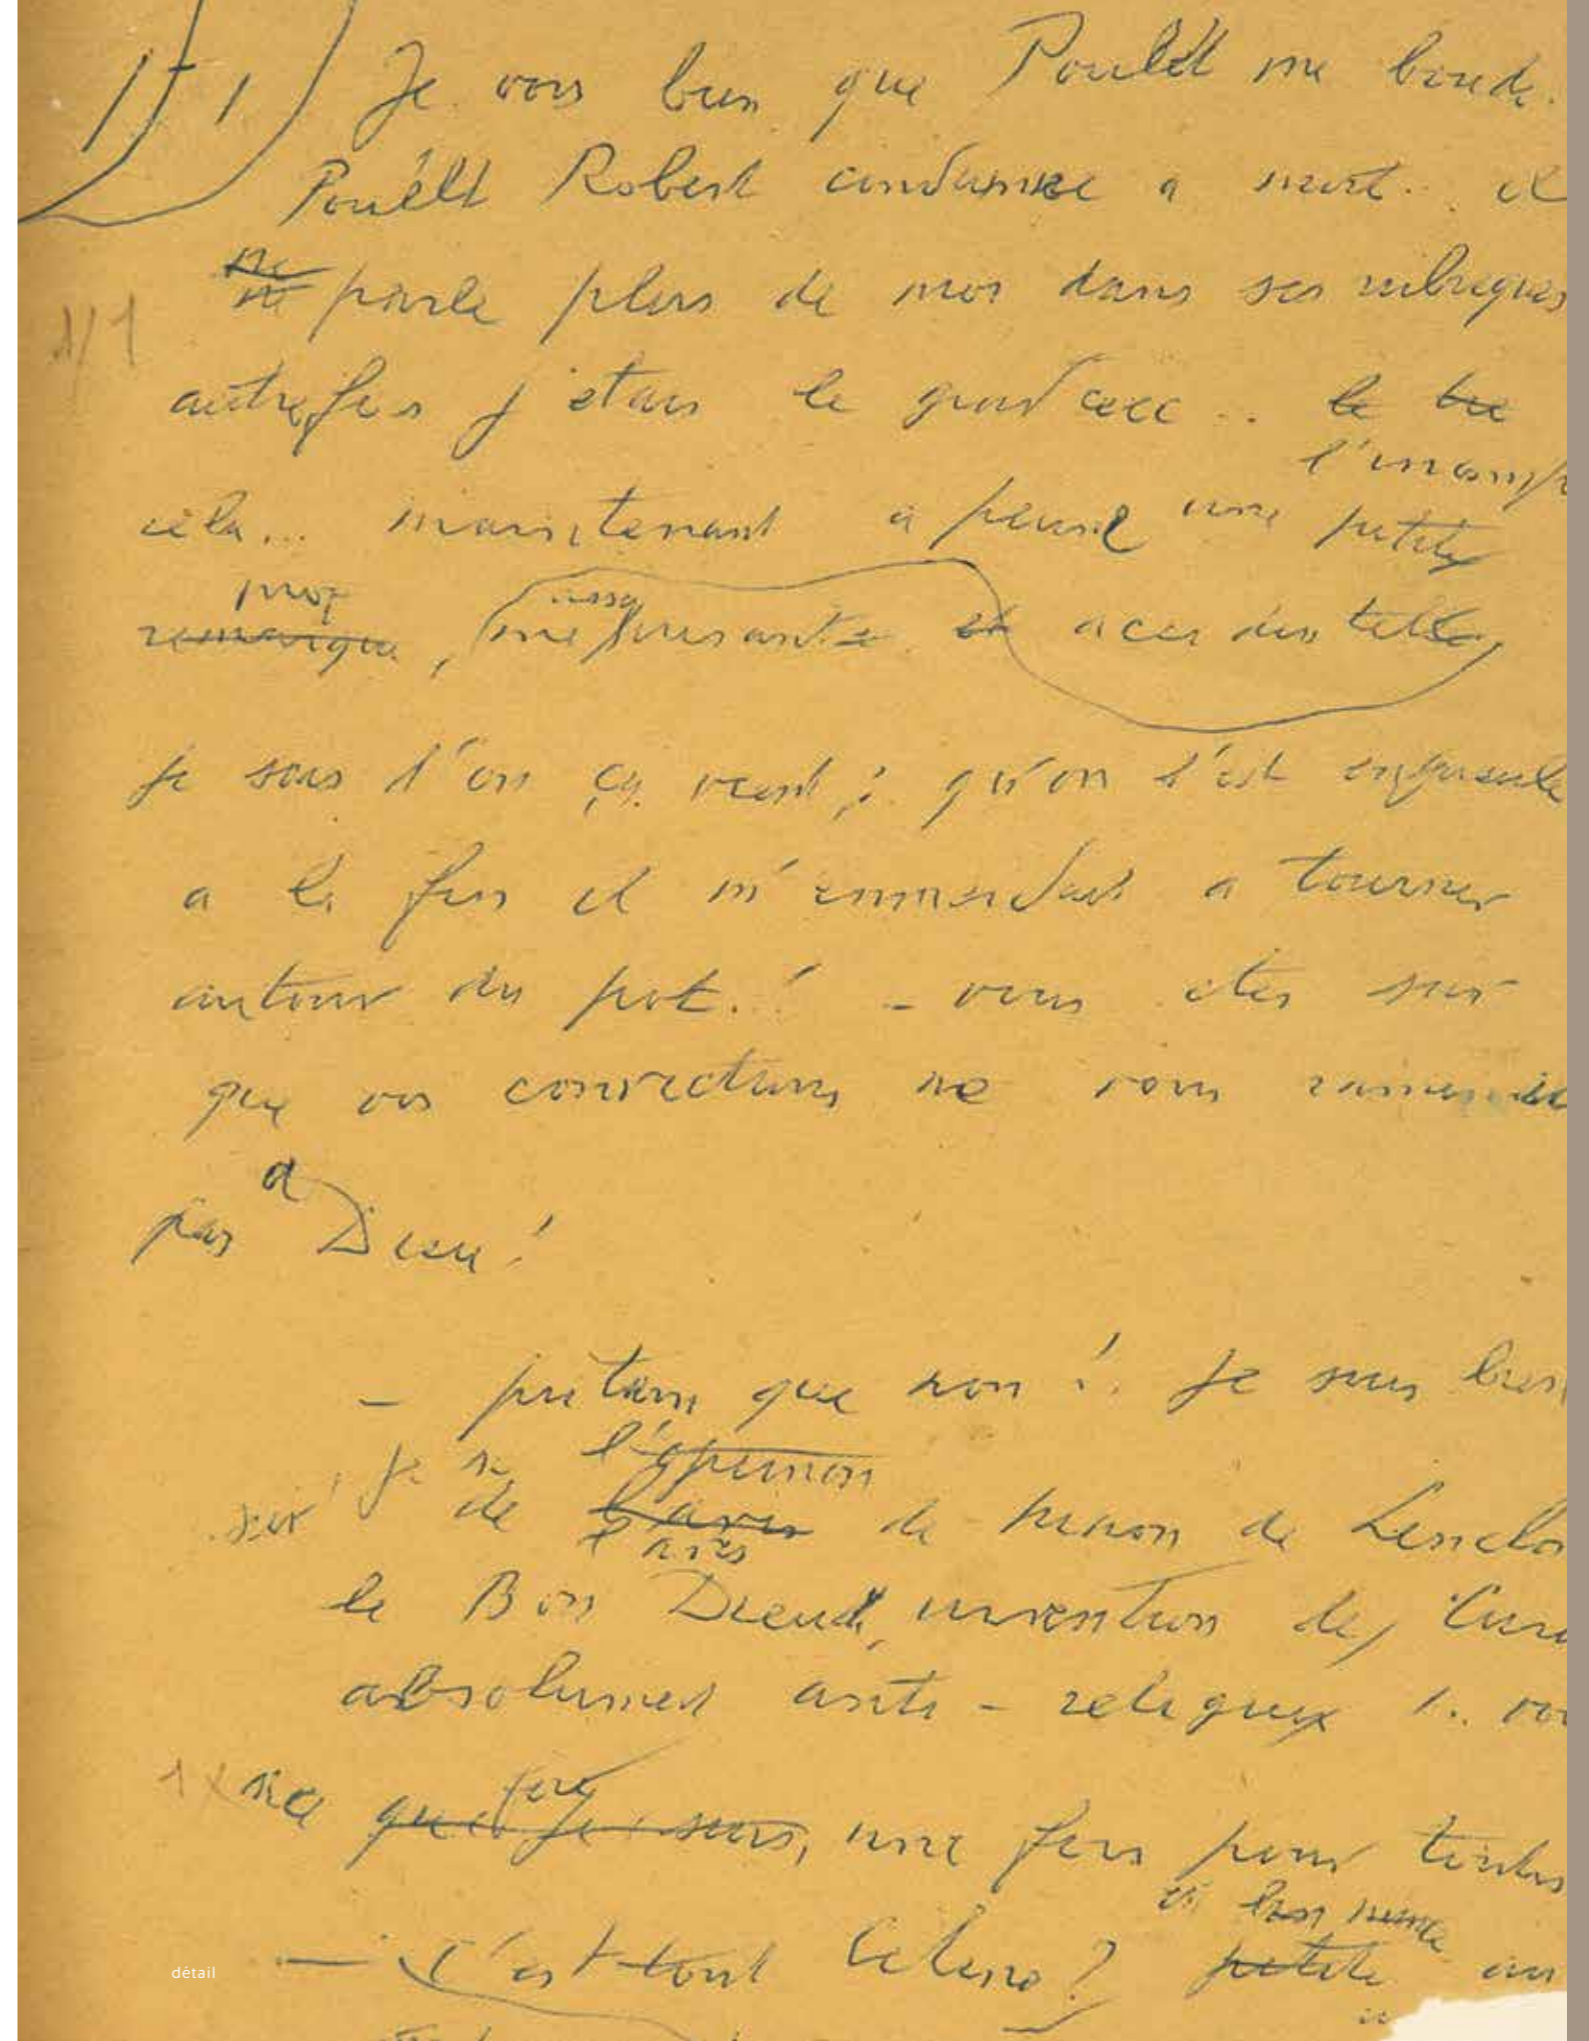 1) Je vois bien que Poulet me boude.
Poulet Robert condamné a mort.. il
ne parle plus de moi dans ses rubriques
autrefois j'etais le grand ceci.. le
l'incomp
cela... maintenant a peine une petite
remarque, meprisante et accidentelle
je sais d'où ça vient ; qu'on s'est engueulé
a la fin il m'emmerdait a tourner
autour du pot.! - vous etes sur
que vos convictions ne vous ramenent
a
pas Dieu !
- putain que non !. Je suis bien
je l'opinion
de l'avis de Ninon de Lenclo
l'avis
le Bon Dieu, invention des Curé
absolument anti-religieux !..
1x que je suis, une fois pour toutes
- C'est tout Celine ? petite
détail